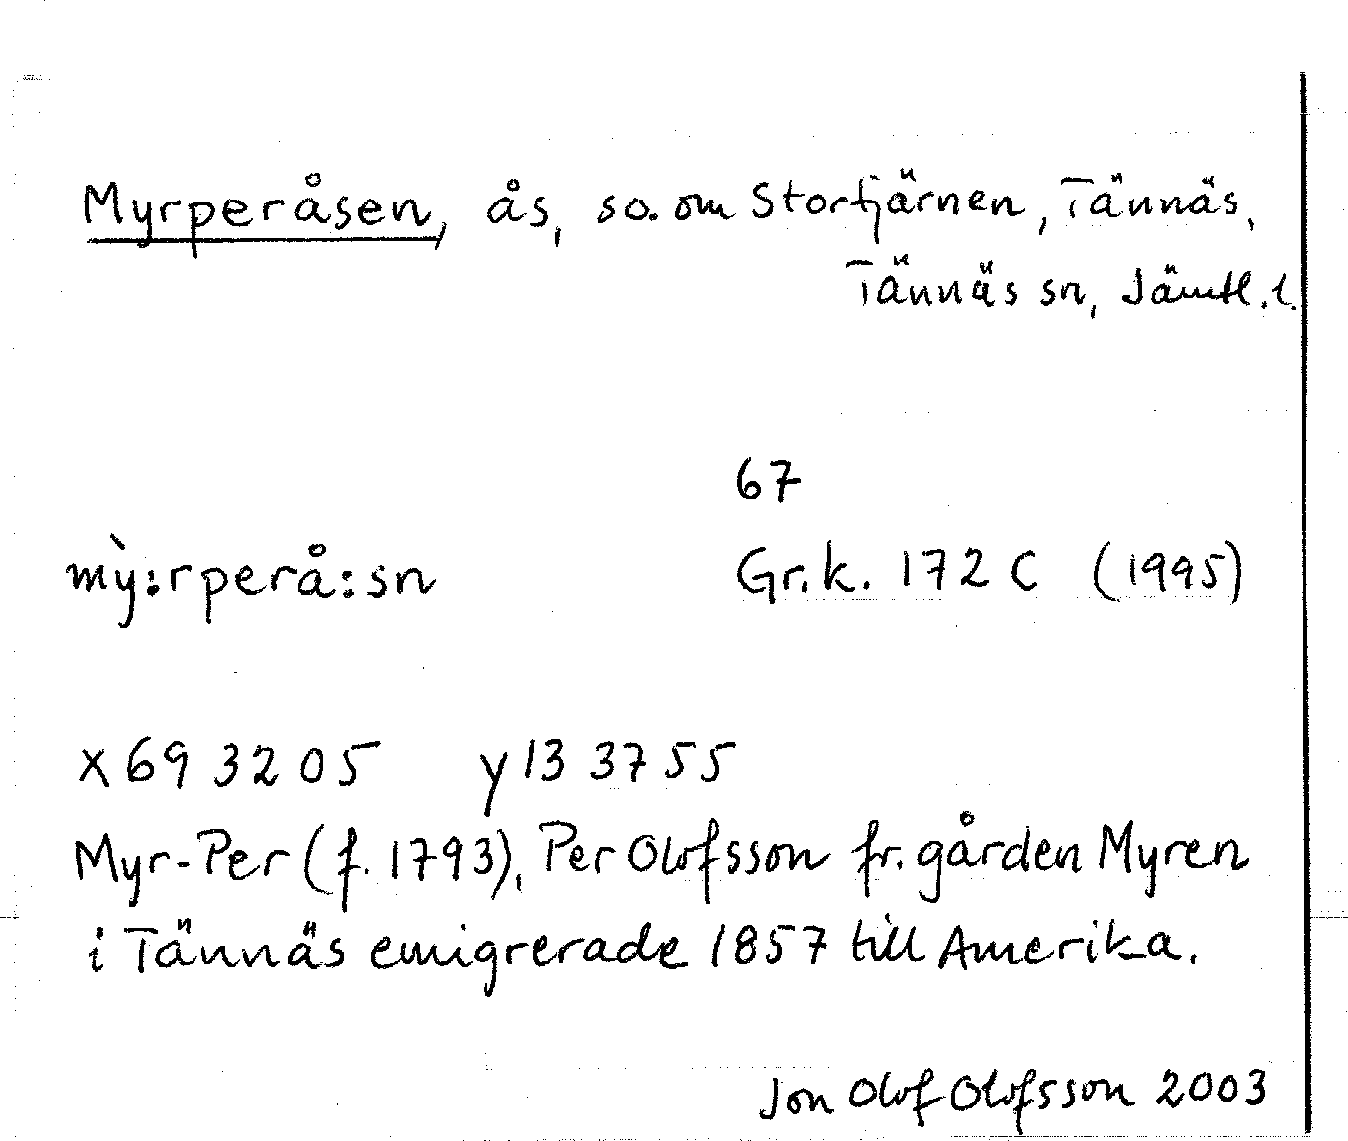 Myrperåsen, ås, so. om Stortjärnen, Tännäs,
Tännäs sn, Jämtl. l.
67
mỳ:rperå:sn Gr.k. 172 C (1995)
x 69 32 05 y 13 37 55
Myr-Per (f. 1793), Per Olofsson fr. gården Myren
i Tännäs emigrerade 1857 till Amerika.
Jon Olof Olofsson 2003